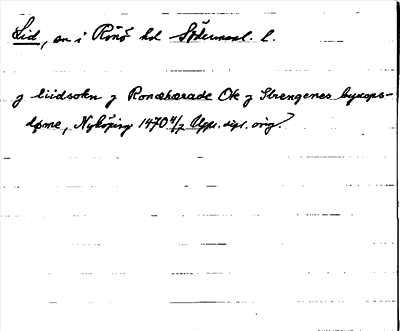 Lid, sn i Rönö hd Södermanl. l.
j liidsokn j Ronæhærade Ok j Strengenes byscops-
døme, Nyköping 1470 4/7 Upps. dipl. orig.